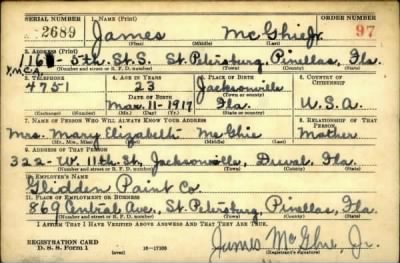 SERIAL NUMBER 1. NAME (Print) ORDER NUMBER
2689 James McGhie Jr. 97
(First) (Middle) (Last)
2. ADDRESS (Print)
116 - 5th. St. S. St. Petersburg, Pinellas, Fla.
(Number and street or R. F. D. number) (Town) (County) (State)
Y.M.C.A.
3. TELEPHONE 4. AGE IN YEARS 5. PLACE OF BIRTH 6. COUNTRY OF CITIZENSHIP
4751 23 Jacksonville
DATE OF BIRTH (Town or county)
Mar. 11 - 1917 Fla. U.S.A.
(Mo.) (Day) (Yr.) (State or country)
7. NAME OF PERSON WHO WILL ALWAYS KNOW YOUR ADDRESS 8. RELATIONSHIP OF THAT PERSON
Mrs. Mary Elizabeth McGhie Mother
(Mr., Mrs., Miss) (First) (Middle) (Last)
9. ADDRESS OF THAT PERSON
322 - W. 11th. St., Jacksonville, Duval, Fla.
(Number and street or R. F. D. number) (Town) (County) (State)
10. EMPLOYER'S NAME
Glidden Paint Co.
11. PLACE OF EMPLOYMENT OR BUSINESS
869 Central Ave., St. Petersburg, Pinellas, Fla.
(Number and street or R. F. D. number) (Town) (County) (State)
I AFFIRM THAT I HAVE VERIFIED ABOVE ANSWERS AND THAT THEY ARE TRUE.
REGISTRATION CARD
D. S. S. Form 1 16-17105 James McGhie, Jr.
(Registrant's signature)